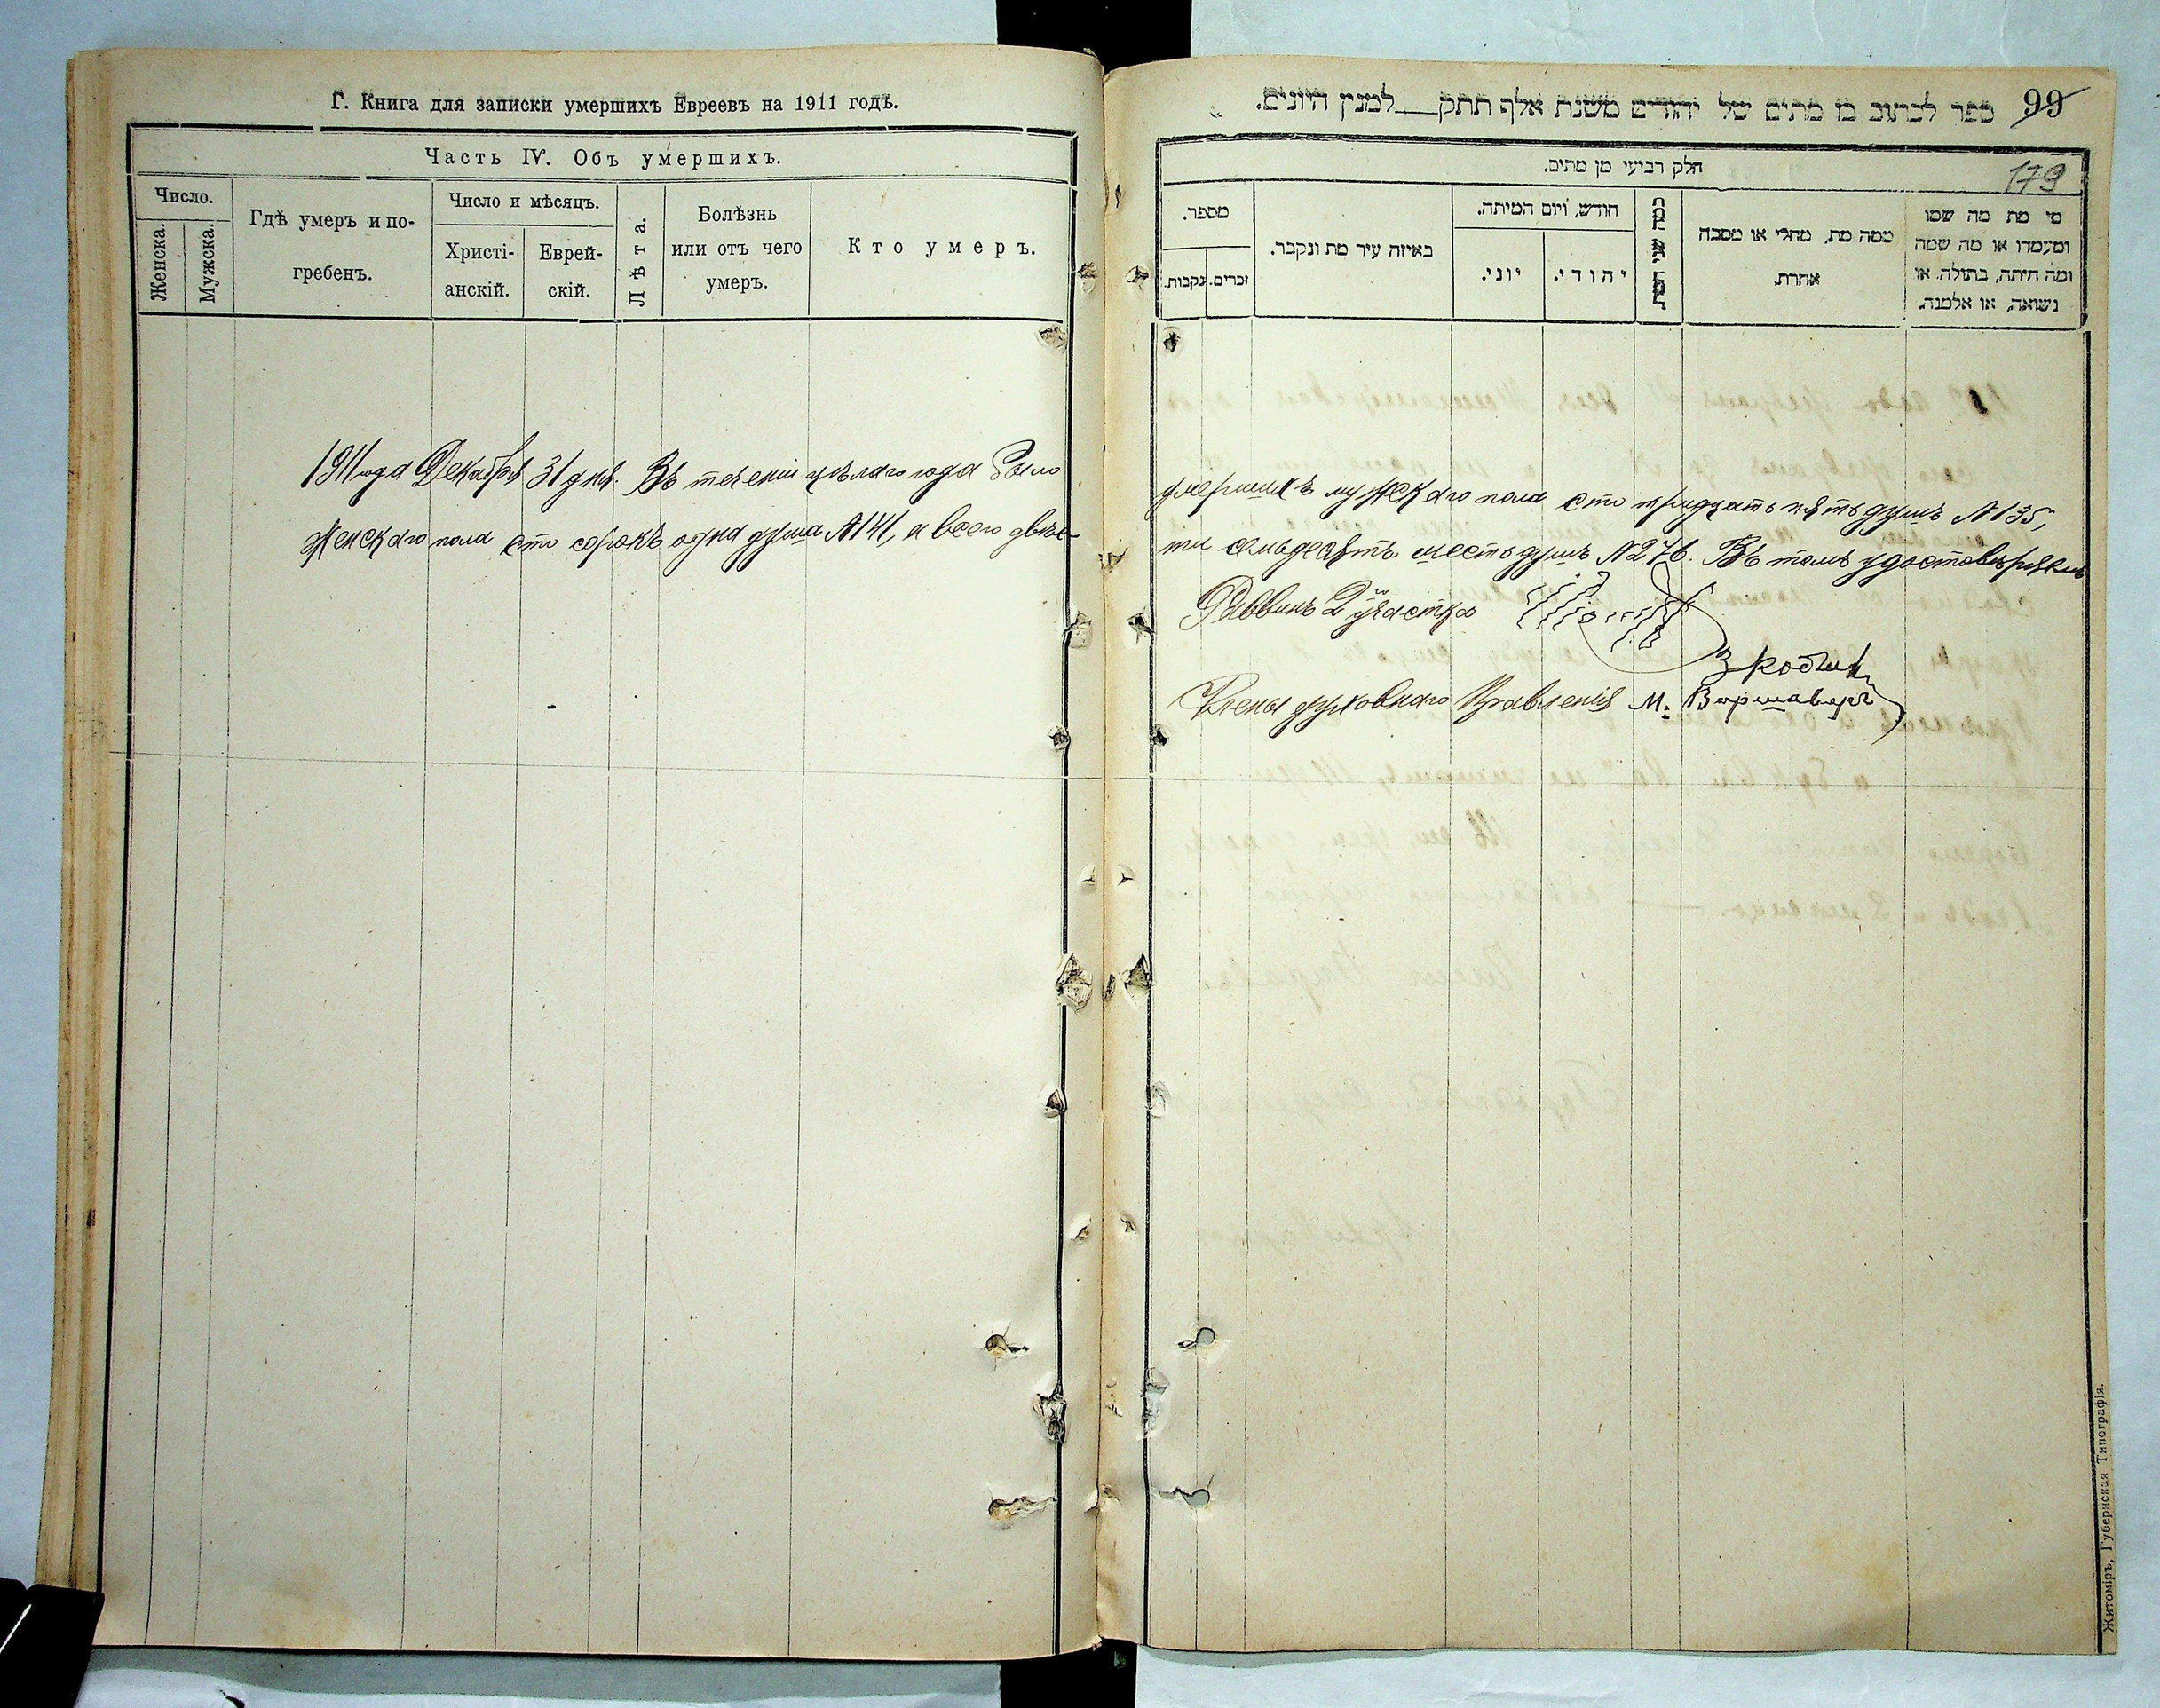 Г. Книга для записки умершихъ Евреевъ на 1911 годъ.
Часть IV. Объ умершихъ.
Число.
Женска.
Мужска.
Гдѣ умеръ и по-
гребенъ.
Число и мѣсяцъ.
Христі-
анскій.
Еврей-
скій.
Лѣта.
Болѣзнь
или отъ чего
умеръ.
Кто умеръ.
1911 года Декабря 31 дня. Въ теченіи цѣлаго года было
женскаго пола сто сорокъ одна душа №141, а всего двѣс-
ספר לכתוב בו מתים של יהודים משנת אלף תתק למנין היונים.
99
179
חלק רביעי מן מתים.
מספר.
זכרים.
נקבות.
באיזה עיר מת ונקבר.
חודש, ויום המיתה.
יוני.
יהודי.
כמה שני המת.
ממה מת, מחלי או מסבה
אחרת.
מי מת מה שמו
ומעמדו או מה שמה
ומה היתה, בתולה, או
נשואה, או אלמנה.
умершихъ мужескаго пола сто тридцать пять душъ №135,
ти семьдесятъ шесть душъ №276. Въ томъ удостовѣряемъ
Раввинъ 2го участка
Члены духовнаго Правленія М. Варшаверъ
Житоміръ, Губернская Типографія.